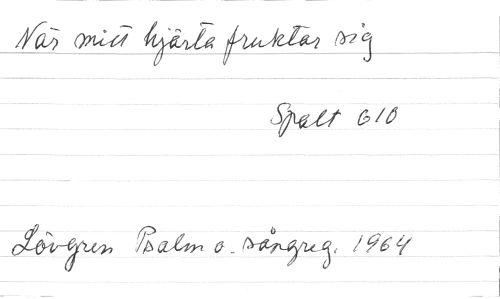 När mitt hjärta fruktar sig
Spalt 610
Lövgren Psalm o. sångreg. 1964